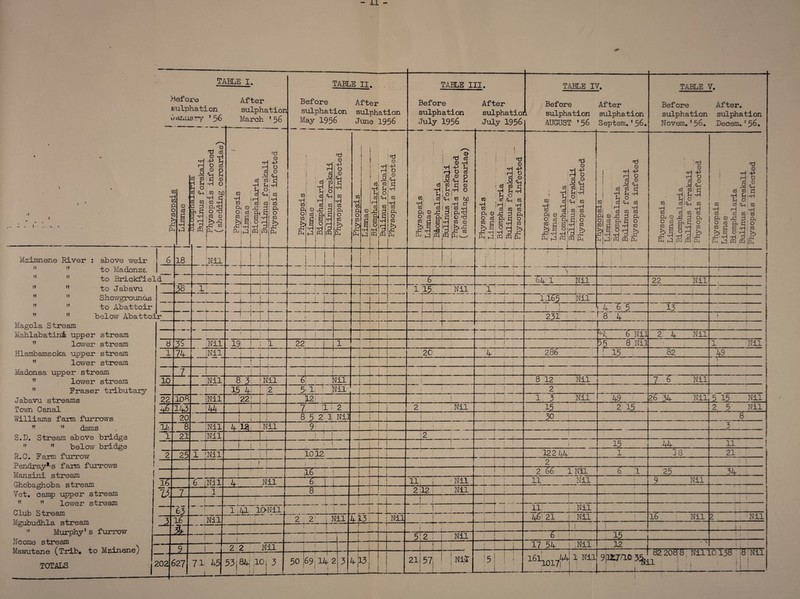 - 11 -
TABLE I. TABLE II. TABLE III. TABLE IV. TABLE V.
Before sulphation January '56 After sulphation March '56 Before sulphation May 1956 After sulphation June 1956 Before sulphation July 1956 After sulphation July 1956 Before sulphation AUGUST '56 After sulphation Septem.'56. Before sulphation Novem.'56. After. sulphation Decem.'56.
Physopsis Limnae Biomphalaria Bulinus forskali Physopsis infected (shedding cercariae)
Physopsis Limnae Biomphalaria Bulinus forskali Physopsis infected
Physopsis Limnae Biomphalaria Bulinus forskali Physopsis infected
Physopsis Limnae Biomphalaria Bulinus forskali Physopsis infected
Physopsis Limnae Biomphalaria Bulinus forskali Physopsis infected (shedding cercariae)
Physopsis Limnae Biomphalaria Bulinus forskali Physopsis infected
Physopsis Limnae Biomphalaria Bulinus forskali Physopsis infected
Physopsis Limnae Biomphalaria Bulinus forskali Physopsis infected
Physopsis Limnae Biomphalaria Bulinus forskali Physopsis infected
Physopsis Limnae Biomphalaria Bulinus forskali Physopsis infected
Mzimnene River : above weir 6 18 Nil
" " to Madonza
" " to Brickfield 6 64 1 Nil 22 Nil
" " to Jabavu 38 1 1 15 Nil 1
" " Showgrounds 1,165 Nil
" " to Abattoir 4 6 5 13
" " below Abattoir 231 8 4
Magola Stream
Mahlabatini upper stream 6 Nil 2 4 Nil
" lower stream 8 35 Nil 19 1 22 1 8 Nil 1 Nil
Hlambamsoka upper stream 1 74 Nil 20 4 286 15 82 49
" lower stream
Madonsa upper stream 7
" lower stream 10 Nil 8 3 Nil 6 Nil 8 12 Nil 7 6 Nil
" Fraser tributary 15 4 2 5 1 Nil 2
Jabavu streams 22 108 Nil 22 12 1 3 Nil 49 26 34 Nil 5 15 Nil
Town Canal 46 143 44 7 1 2 2 Nil 15 2 15 2 5 Nil
Williams farm furrows 20 8 5 2 1 Nil 30 8
" " dams 14 8 Nil 4 Nil 9 3
S.D. Stream above bridge 1 21 Nil 2
" " below bridge 15 44 11
R.C. Farm furrow 2 25 1 Nil 10 12 122 44 1 38 21
Pendray's farm furrows 2
Manzini stream 16 2 66 1 Nil 6 1 25 34
Ghobaghoba stream 16 6 Nil 4 Nil 6 11 Nil 11 Nil 9 Nil
Vet. camp upper stream 73 7 1 8 2 12 Nil
" " lower stream
Club Stream 63 1 41 10 Nil 11 Nil
Mgubudhla stream 3 16 Nil 2 2 Nil 4 13 Nil 46 21 Nil 16 Nil 2 Nil
" Murphy's furrow 5 2 Nil 6 15
Ncome stream 17 54 Nil 12
Mawutane (Trib. to Mzinene) 9 2 2 Nil
TOTALS 202 627 7 1 45 53 84 10 3 50 69 14 2 3 4 13 21 57 Nil 5 161 1017 44 1 Nil 82 208 8 Nil 10 138 8 Nil